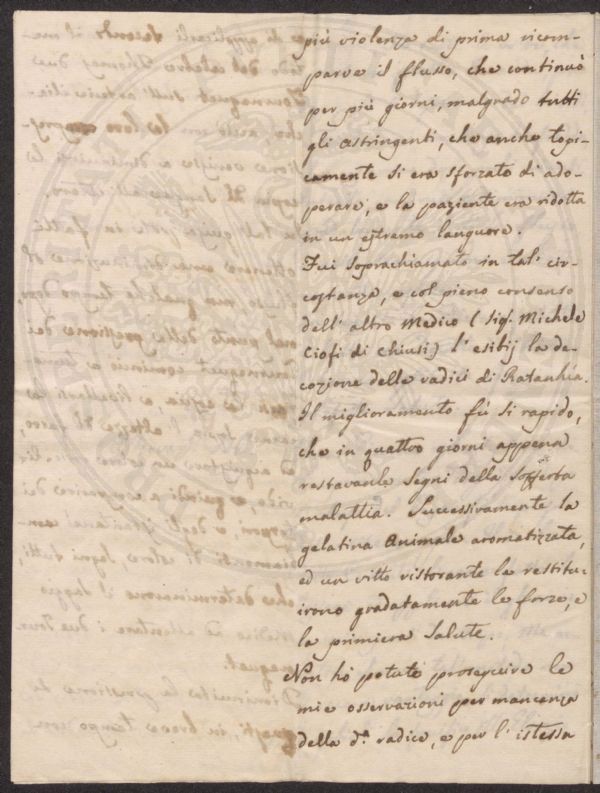 più violenza di prima ricom-
parve il flusso, che continuò
per più giorni, malgrado tutti
gli astringenti, che anche topi-
camente si era sforzato di ado-
perare, e la paziente era ridotta
in un estremo languore.
Fui soprachiamato in tal' cir-
costanza, e col pieno consenso
dell' altro Medico (Sig.r Michele
Ciofi di Chiusi) l'esibij la de-
cozione delle radici di Ratanhia.
Il miglioramento fù si rapido,
che in quattro giorni appena
restavanle segni della sofferta
malattia. Successivamente la
gelatina animale aromatizzata,
ed un vitto ristorante le restitu-
irono gradatamente le forze, e
la primiera salute.
Non hò potute proseguire le
mie osservazioni per mancanza
della d.a radice, e per l'istessa